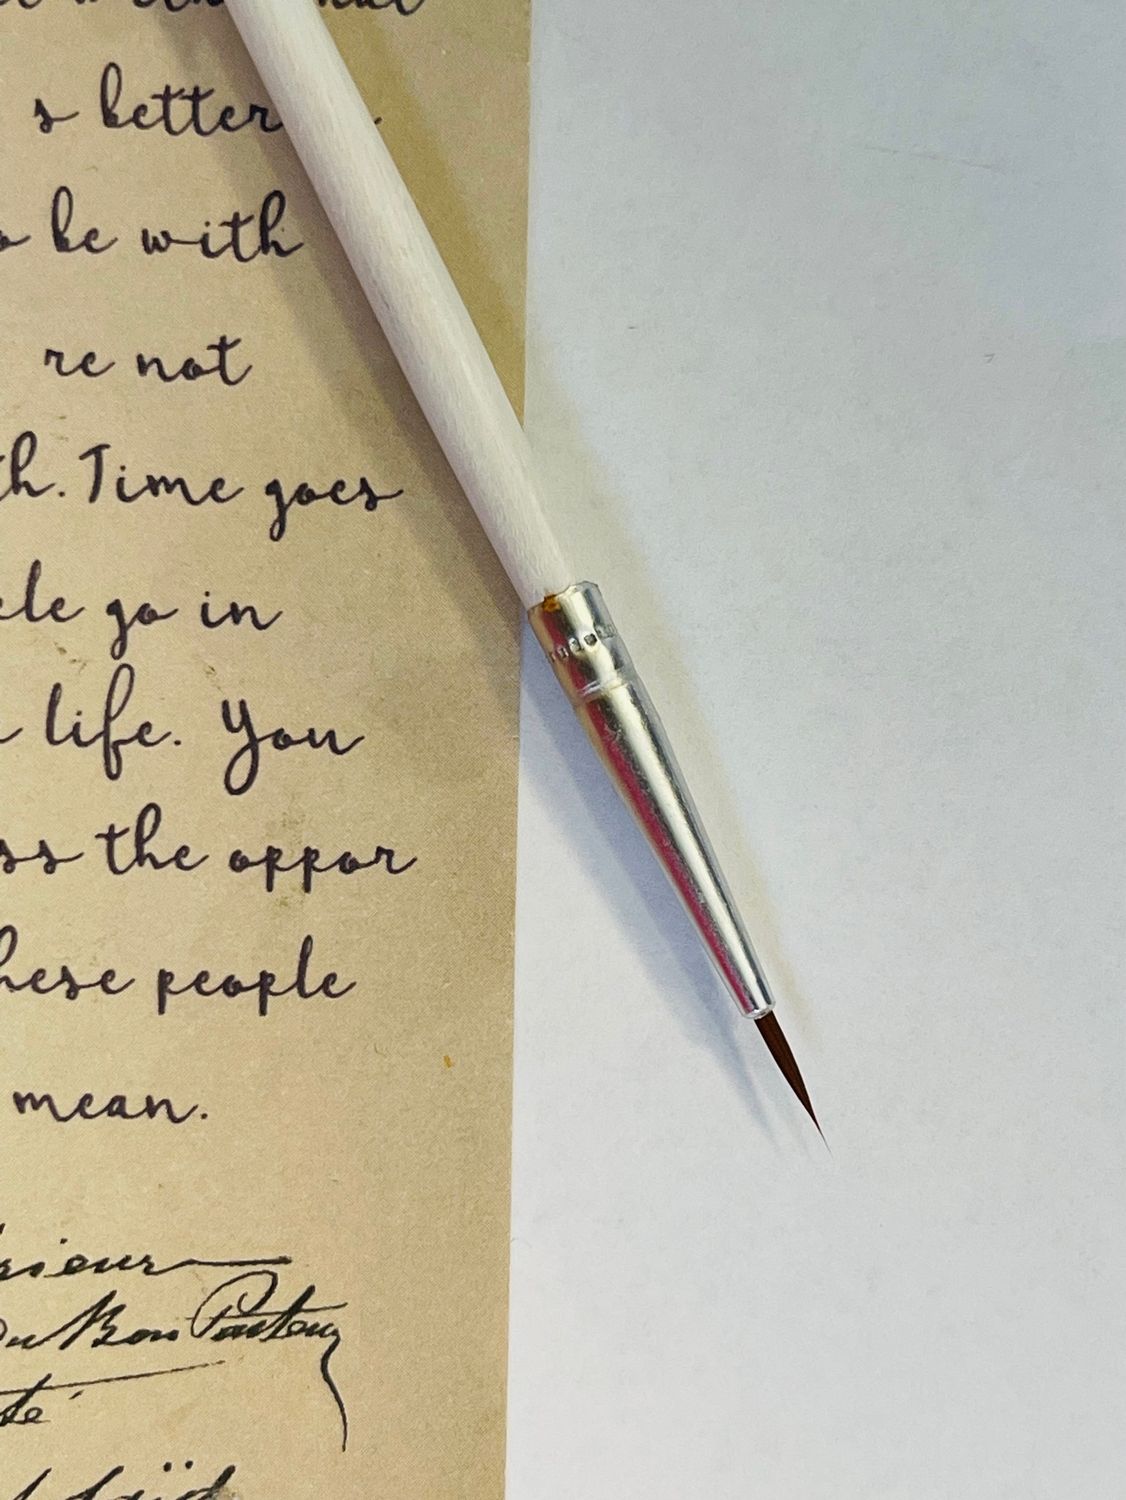 s better
be with
re not
th. Time goes
go in
life. You
ss the oppor
hese people
mean.
rieur
Du Bon Pasteur
té